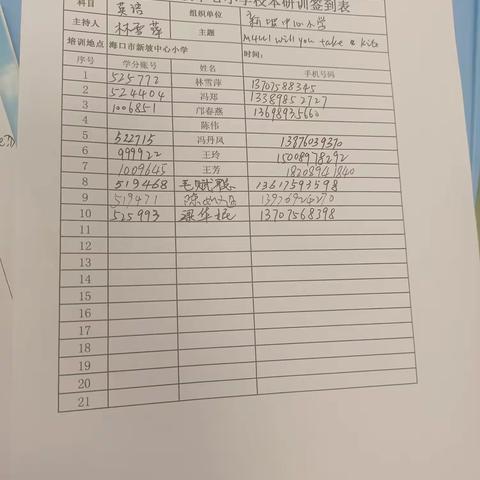 小学校本研训签到表
科目 英语 组织单位 新坡中心小学
主持人 林雪萍 主题 M4U1 will you take a kite
培训地点 海口市新坡中心小学 时间:
序号 学分账号 姓名 手机号码
1 525772 林雪萍 13707588345
2 524404 冯郑 13389852727
3 1006851 邝春燕 13698935660
4 陈伟
5 522715 冯丹凤 13876039370
6 999922 王玲 15008978292
7 1009645 王芳 18208941840
8 519468 13617593598
9 519471 13976924270
10 525993 梁华棍 13707568398
11
12
13
14
15
16
17
18
19
20
21